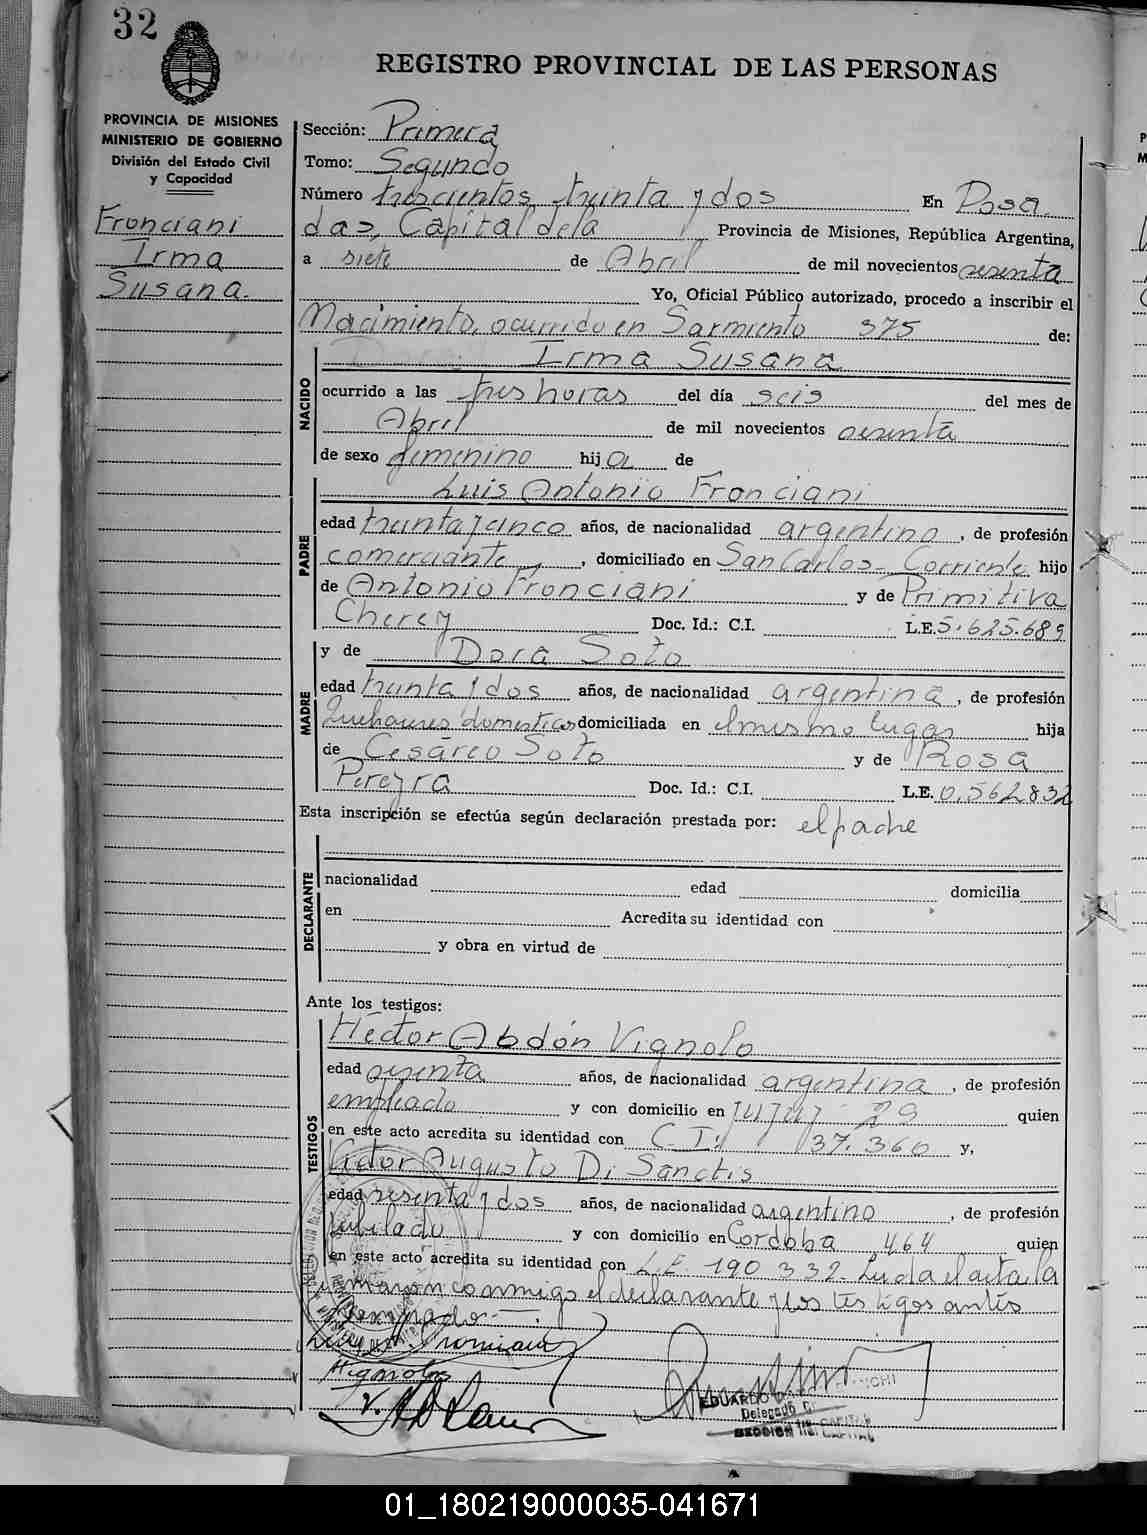 32
REGISTRO PROVINCIAL DE LAS PERSONAS
PROVINCIA DE MISIONES
MINISTERIO DE GOBIERNO
División del Estado Civil
y Capacidad
Fronciani
Irma
Susana.
Sección: Primera
Tomo: Segundo
Número trescientos treinta y dos En Posa
das, Capital de la Provincia de Misiones, República Argentina,
a siete de Abril de mil novecientos sesenta
Yo, Oficial Público autorizado, procedo a inscribir el
Nacimiento, ocurrido en Sarmiento 375 de:
Irma Susana
NACIDO
ocurrido a las tres horas del día seis del mes de
Abril de mil novecientos sesenta
de sexo femenino hija de
Luis Antonio Fronciani
PADRE
edad treinta y cinco años, de nacionalidad argentino, de profesión
comerciante, domiciliado en San Carlos - Corriente hijo
de Antonio Fronciani y de Primitiva
Cherey Doc. Id.: C.I. L.E. 5.625.689
y de Dora Soto
MADRE
edad treinta y dos años, de nacionalidad argentina, de profesión
Quehaceres domesticos domiciliada en el mismo lugar hija
de Cesáreo Soto y de Rosa
Pereyra Doc. Id.: C.I. L.E. 0.562832
Esta inscripción se efectúa según declaración prestada por: el padre
DECLARANTE
nacionalidad edad domicilia
en Acredita su identidad con
y obra en virtud de
Ante los testigos:
TESTIGOS
Héctor Abdón Vignolo
edad sesenta años, de nacionalidad argentina, de profesión
empleado y con domicilio en Jujuy 29 quien
en este acto acredita su identidad con C.I. 37.360 y,
Victor Augusto Di Sanctis
edad sesenta y dos años, de nacionalidad argentino, de profesión
jubilado y con domicilio en Cordoba 464 quien
en este acto acredita su identidad con L.E. 190.332. Leida el acta la
firmaron conmigo el declarante y los testigos antes
EDUARDO
Delegado
SECCION CAPITAL
01_180219000035-041671